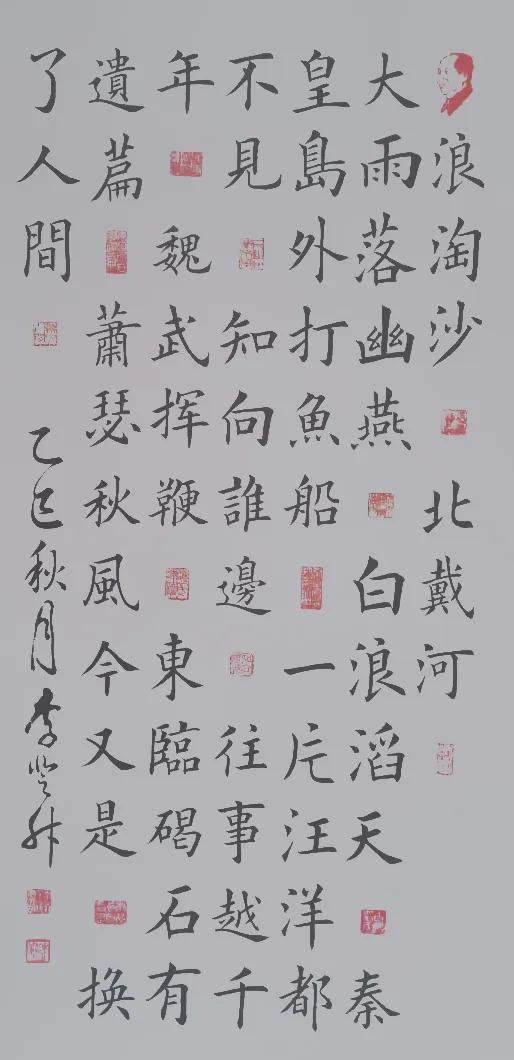 浪淘沙 北戴河
大雨落幽燕 白浪滔天 秦
皇島外打魚船 一片汪洋都
不見 知向誰邊 往事越千
年 魏武挥鞭 東臨碣石有
遺篇 蕭瑟秋風今又是 換
了人間 乙巳秋月李登科